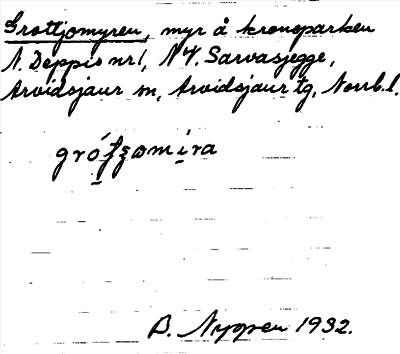 Grottjomyren, myr å kronoparken
N. Deppis nr 1, N.V. Sarvasjegge,
Arvidsjaur sn, Arvidsjaur tg, Norrb. l.
B. Nygren 1932.